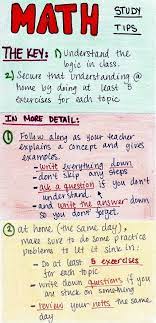 MATH STUDY TIPS
THE KEY: 1) Understand the
logic in class.
2) Secure that understanding @
home by doing at least 5
exercises for each topic
IN MORE DETAIL:
1 Follow along as your teacher
explains a concept and gives
examples.
- write everything down
- don't skip any steps
- ask a question if you don't
understand
- and write the answer down
so you don't forget.
2 at home (the same day),
make sure to do some practice
problems to let it sink in:
- Do at least 5 exercises
for each topic
- write down questions if you
are stuck on something
- review your notes the same
day